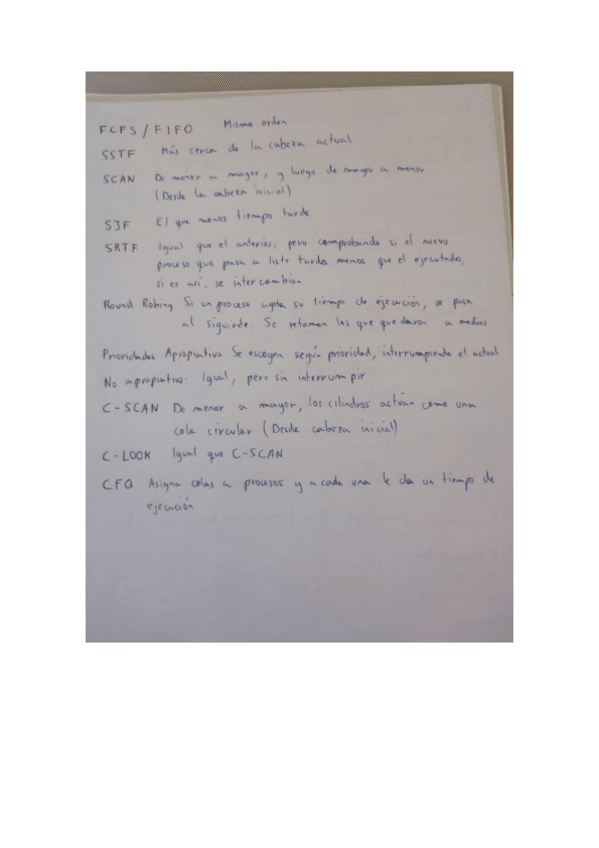 FCFS / FIFO Mismo orden
SSTF Más cerca de la cabeza actual
SCAN De menor a mayor, y luego de mayor a menor
(Desde la cabeza inicial)
SJF El que menos tiempo tarde
SRTF Igual que el anterior, pero comprobando si el nuevo
proceso que pasa a listo tarda menos que el ejecutado,
si es así, se intercambian
Round Robing Si un proceso agota su tiempo de ejecución, se pasa
al siguiente. Se retoman los que quedaron a medias
Prioridades Apropiativo Se escogen según prioridad, interrumpiendo el actual
No apropiativo: Igual, pero sin interrumpir
C-SCAN De menor a mayor, los cilindros actúan como una
cola circular (Desde cabeza inicial)
C-LOOK Igual que C-SCAN
CFQ Asigna colas a procesos y a cada una le da un tiempo de
ejecución